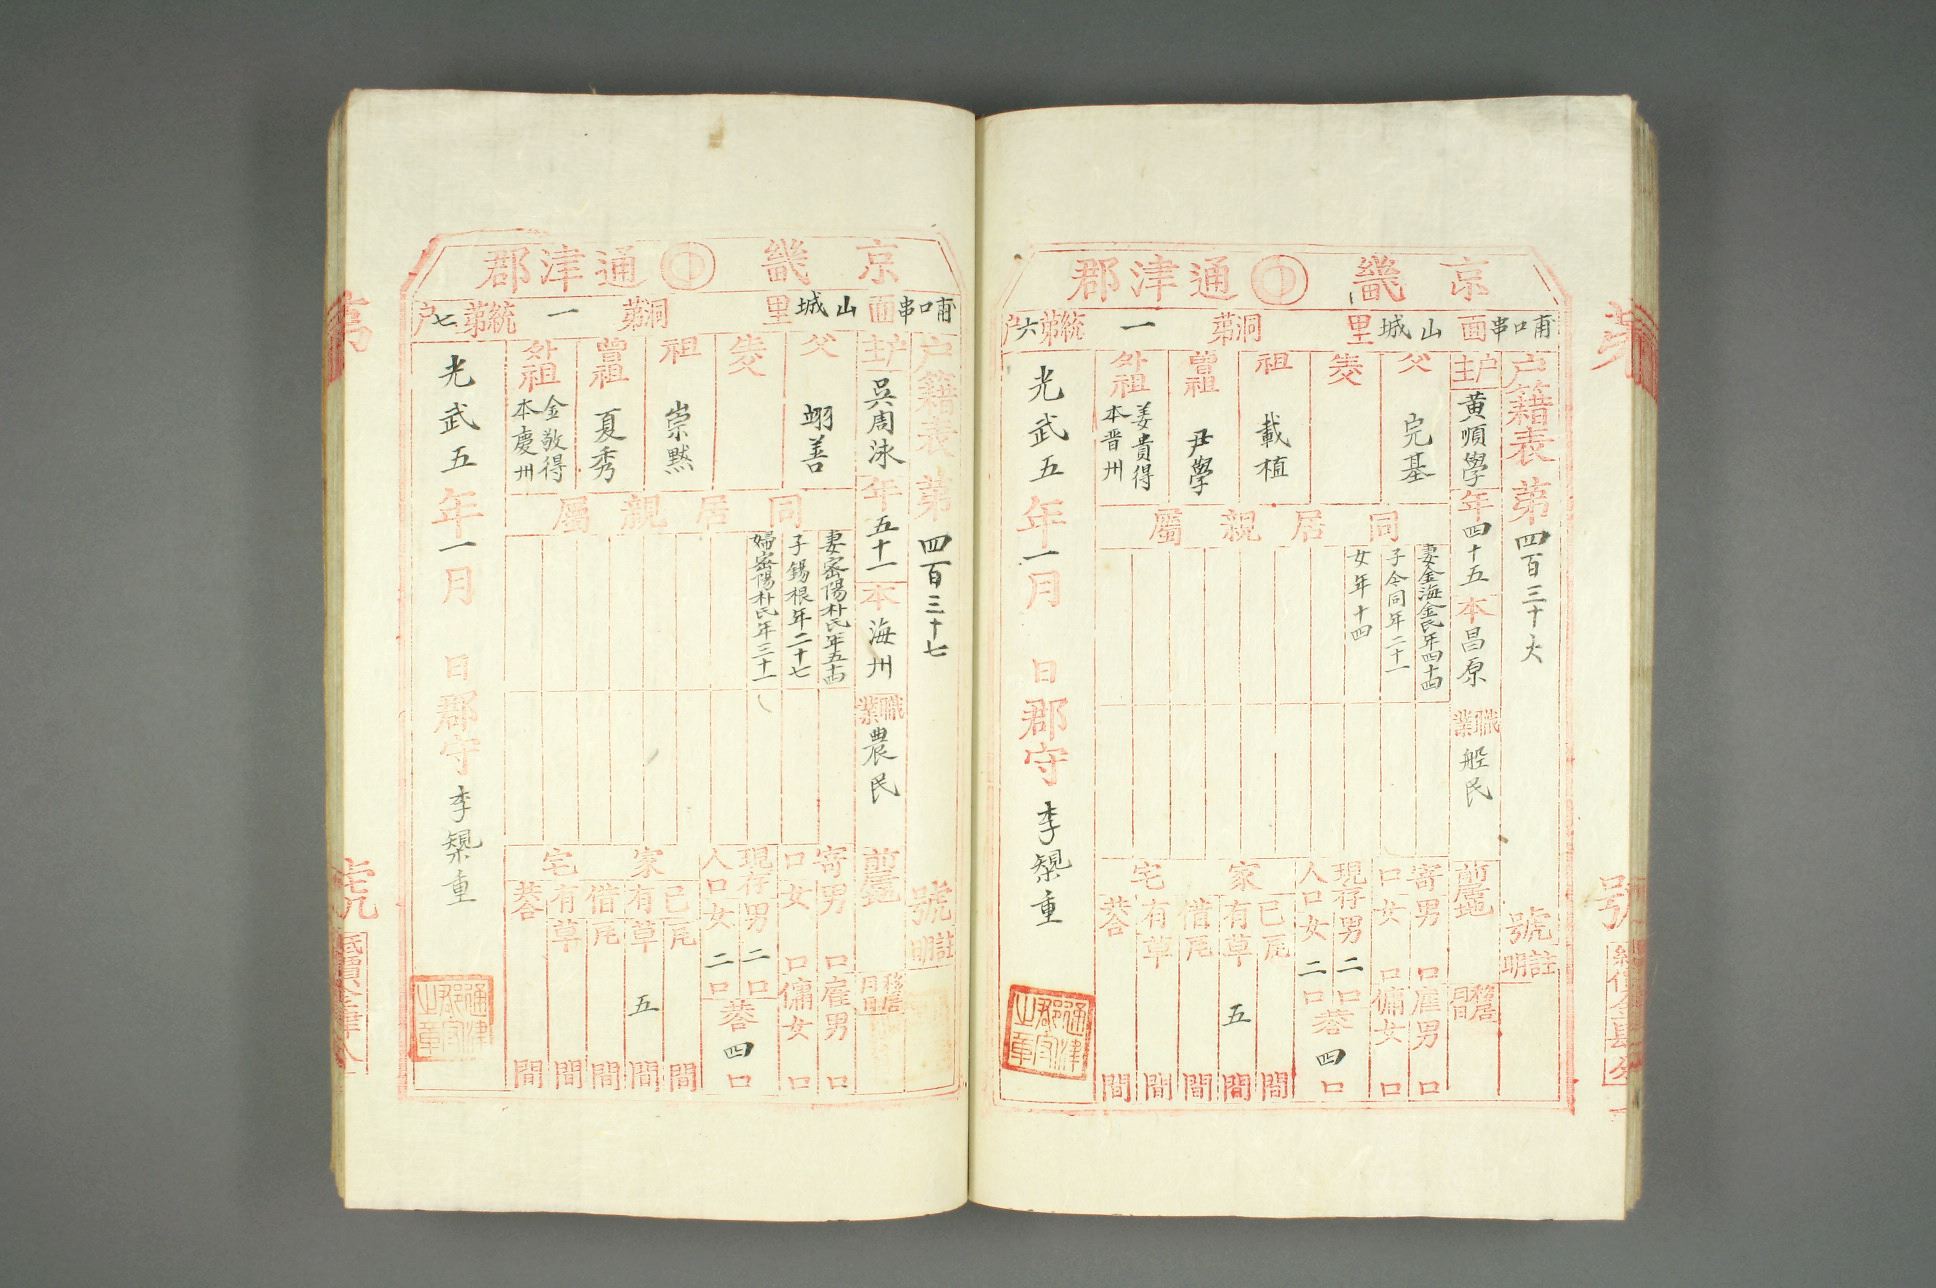 京畿 通津郡
甫口串面山城里 洞第一統第六戶
戶籍表第四百三十六號
註明
戶主黃順學年四十五本昌原職業船民
前居地
移居月日
父完基
生父
祖載植
曾祖尹學
外祖姜貴得本晋州
同居親屬
妻金海金氏年四十四
子令同年二十一
女年十四
寄口男口女口
雇男口傭女口
現存人口男二口女二口共四口
家宅
己有瓦間
草五間
借有瓦間
草間
共合間
光武五年一月日郡守李㮨重
通津郡守之章
京畿 通津郡
甫口串面山城里 洞第一統第七戶
戶籍表第四百三十七號
註明
戶主吳周泳年五十一本海州職業農民
前居地
移居月日
父翊善
生父
祖崇默
曾祖夏秀
外祖金敬得本慶州
同居親屬
妻密陽朴氏年五十四
子錫根年二十七
婦密陽朴氏年三十一
寄口男口女口
雇男口傭女口
現存人口男二口女二口共四口
家宅
己有瓦間
草五間
借有瓦間
草間
共合間
光武五年一月日郡守李㮨重
通津郡守之章